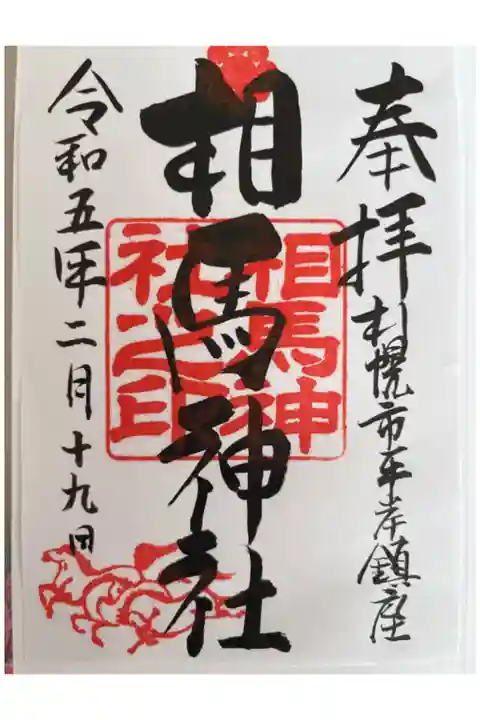 奉拝
札幌市平岸鎮座
相馬神社
相馬神
社之印
令和五年二月十九日